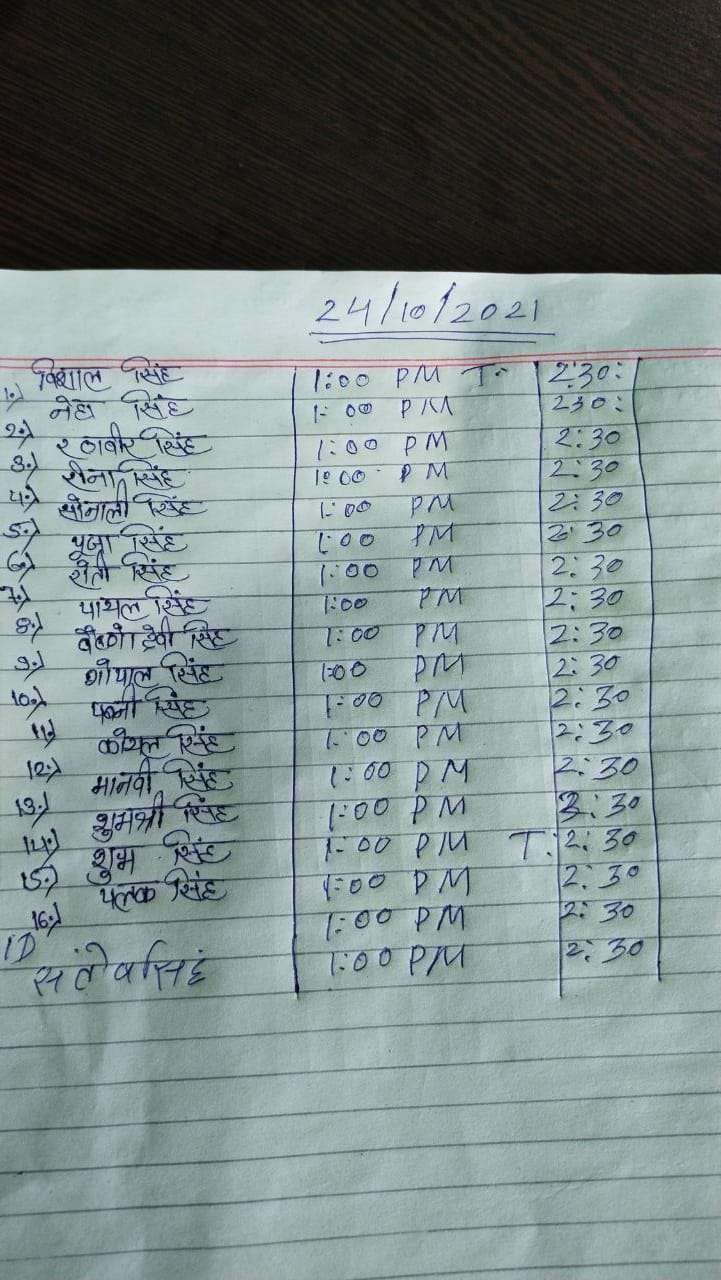 24/10/2021
1.) विशाल सिंह 1:00 PM T: 2:30:
2.) नेहा सिंह 1:00 PM 230:
3.) सिंह 1:00 PM 2:30
4.) रीना सिंह 1:00 PM 2:30
5.) सोनाली सिंह 1:00 PM 2:30
6.) पूजा सिंह 1:00 PM 2:30
7.) सिंह 1:00 PM 2:30
8.) पायल सिंह 1:00 PM 2:30
9.) वैष्णो देवी सिंह 1:00 PM 2:30
10.) गोपाल सिंह 1:00 PM 2:30
11) सिंह 1:00 PM 2:30
12.) कोयल सिंह 1:00 PM 2:30
13.) मानवी सिंह 1:00 PM 2:30
14.) शुभश्री सिंह 1:00 PM 3:30
15.) शुभ सिंह 1:00 PM T: 2:30
16.) पलक सिंह 1:00 PM 2:30
1:00 PM 2:30
संतोष सिंह 1:00 PM 2:30